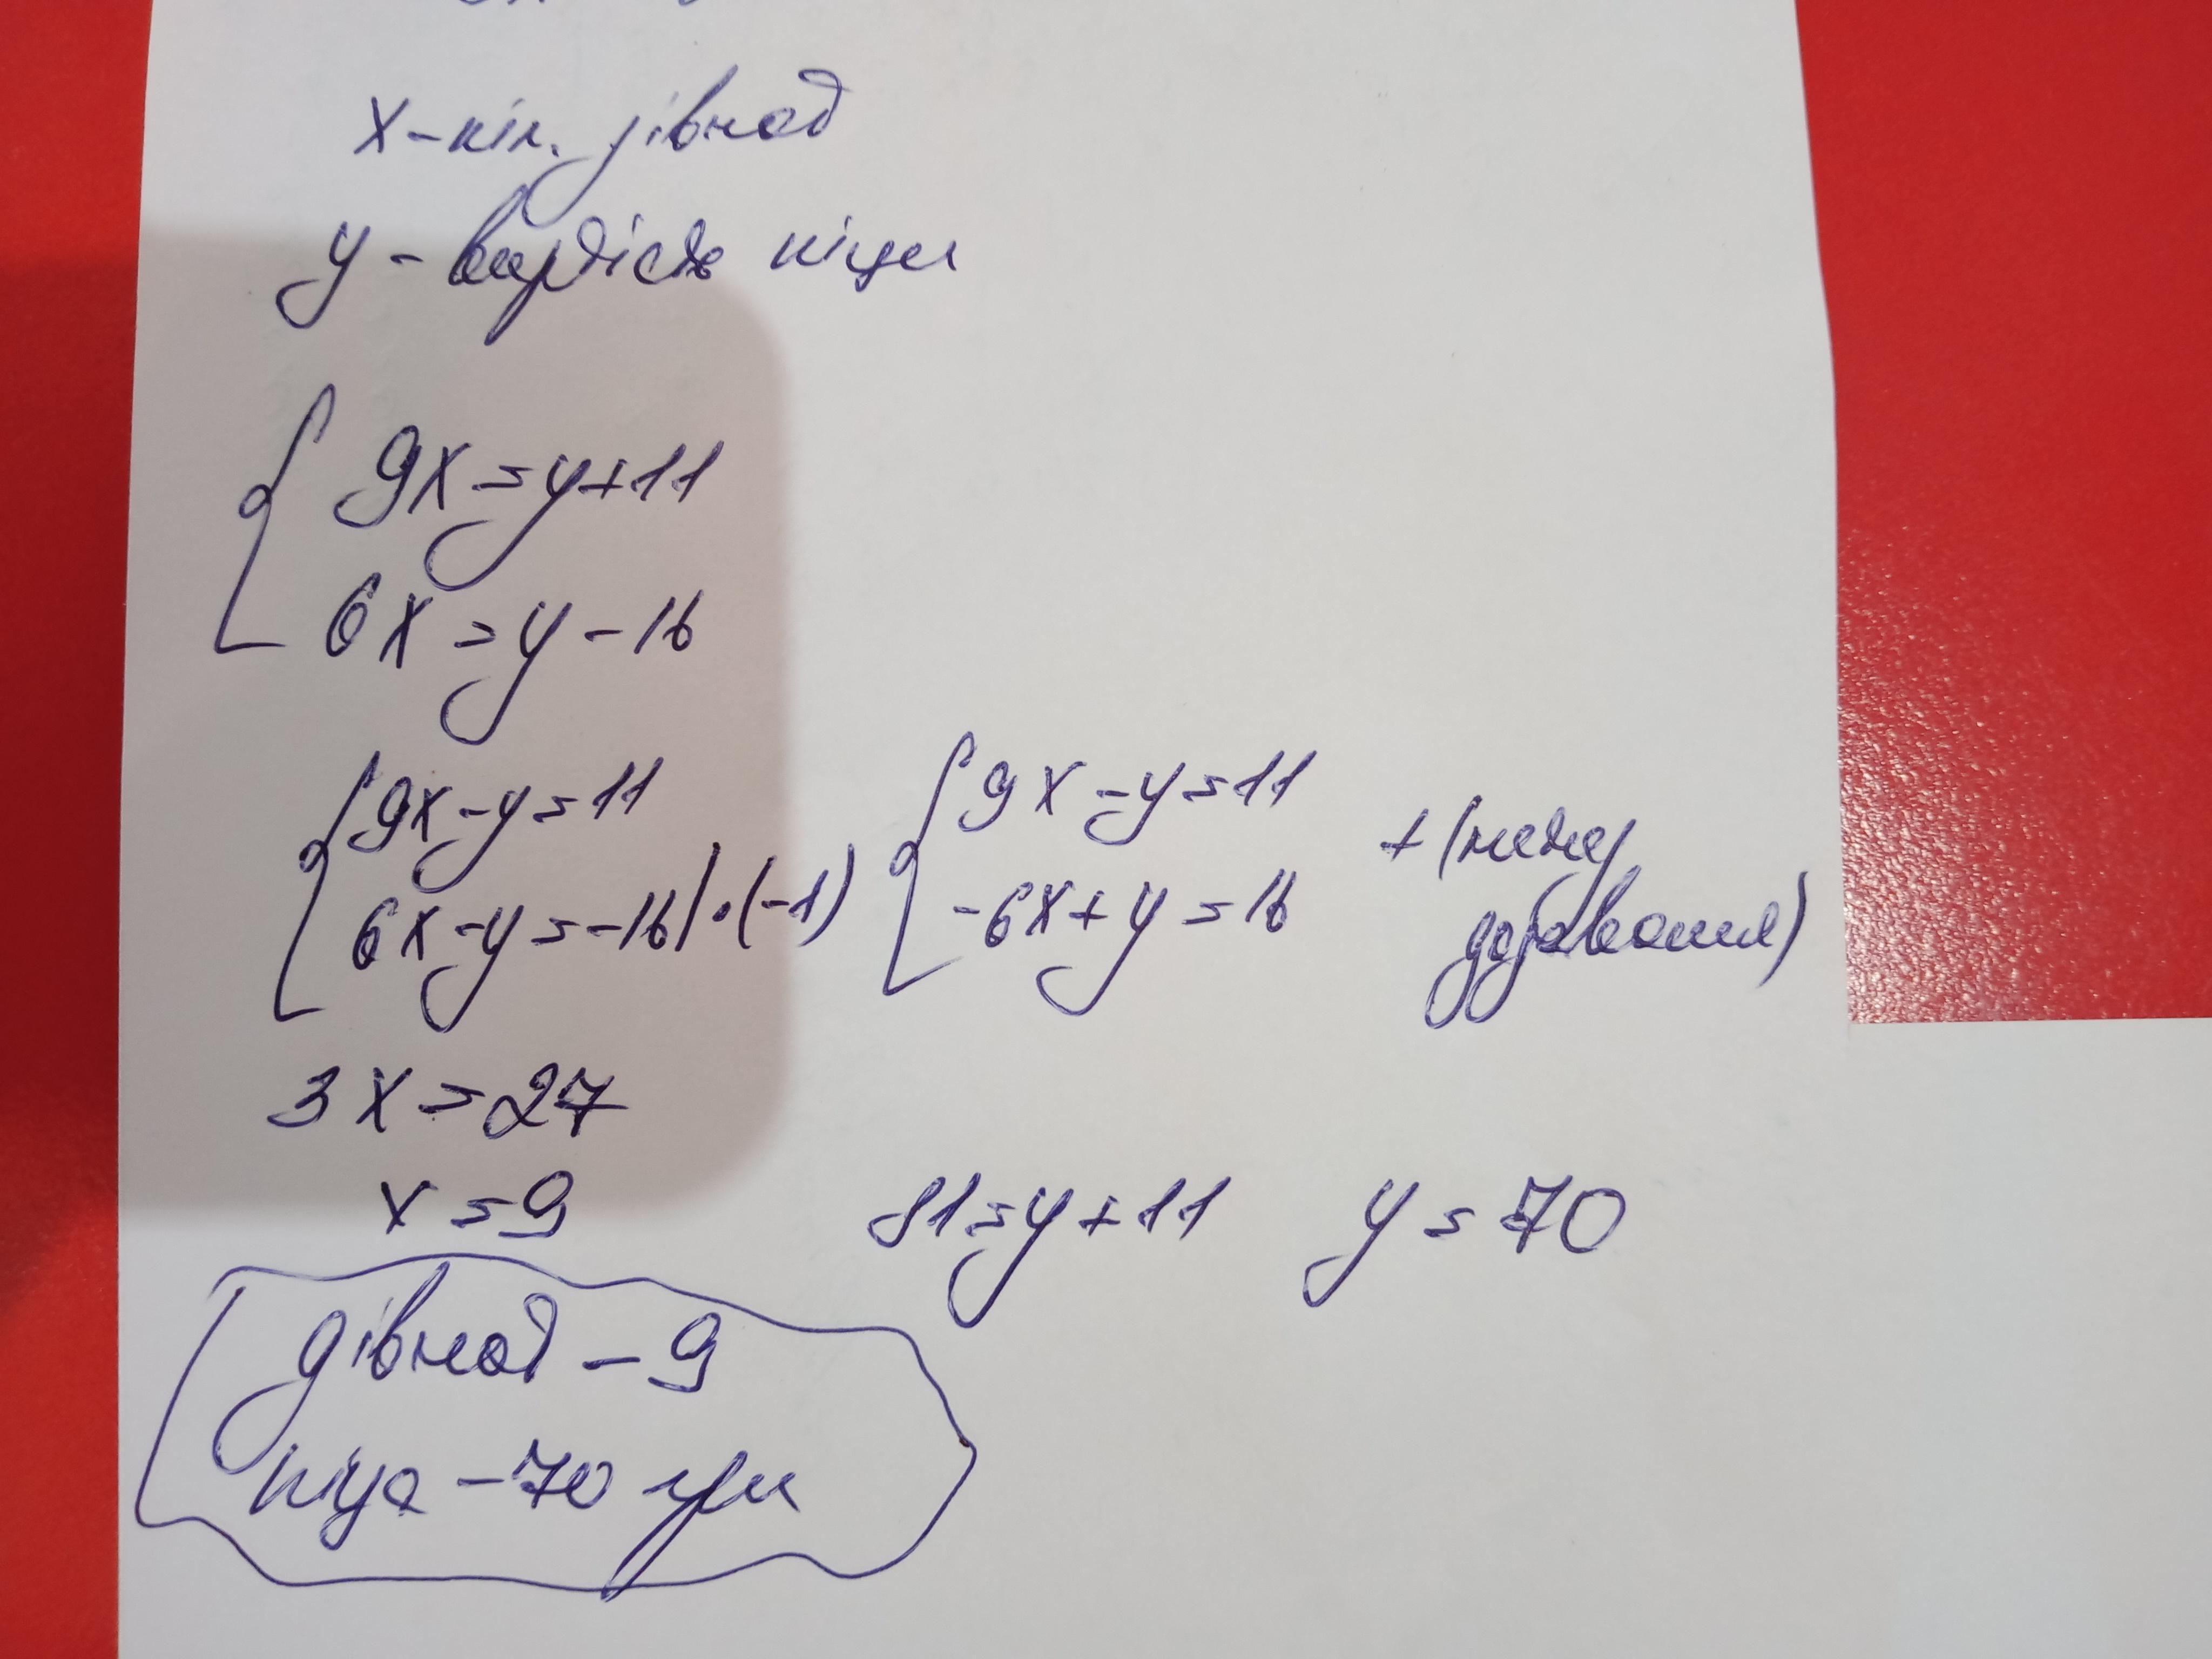 x – кіл. дівчат
y – вартість піци
{ 9x = y + 11
6x = y – 16
{ 9x – y = 11
6x – y = –16 | · (–1)
{ 9x – y = 11
–6x + y = 16
+ (метод
додавання)
3x = 27
x = 9
81 = y + 11
y = 70
дівчат – 9
піца – 70 грн